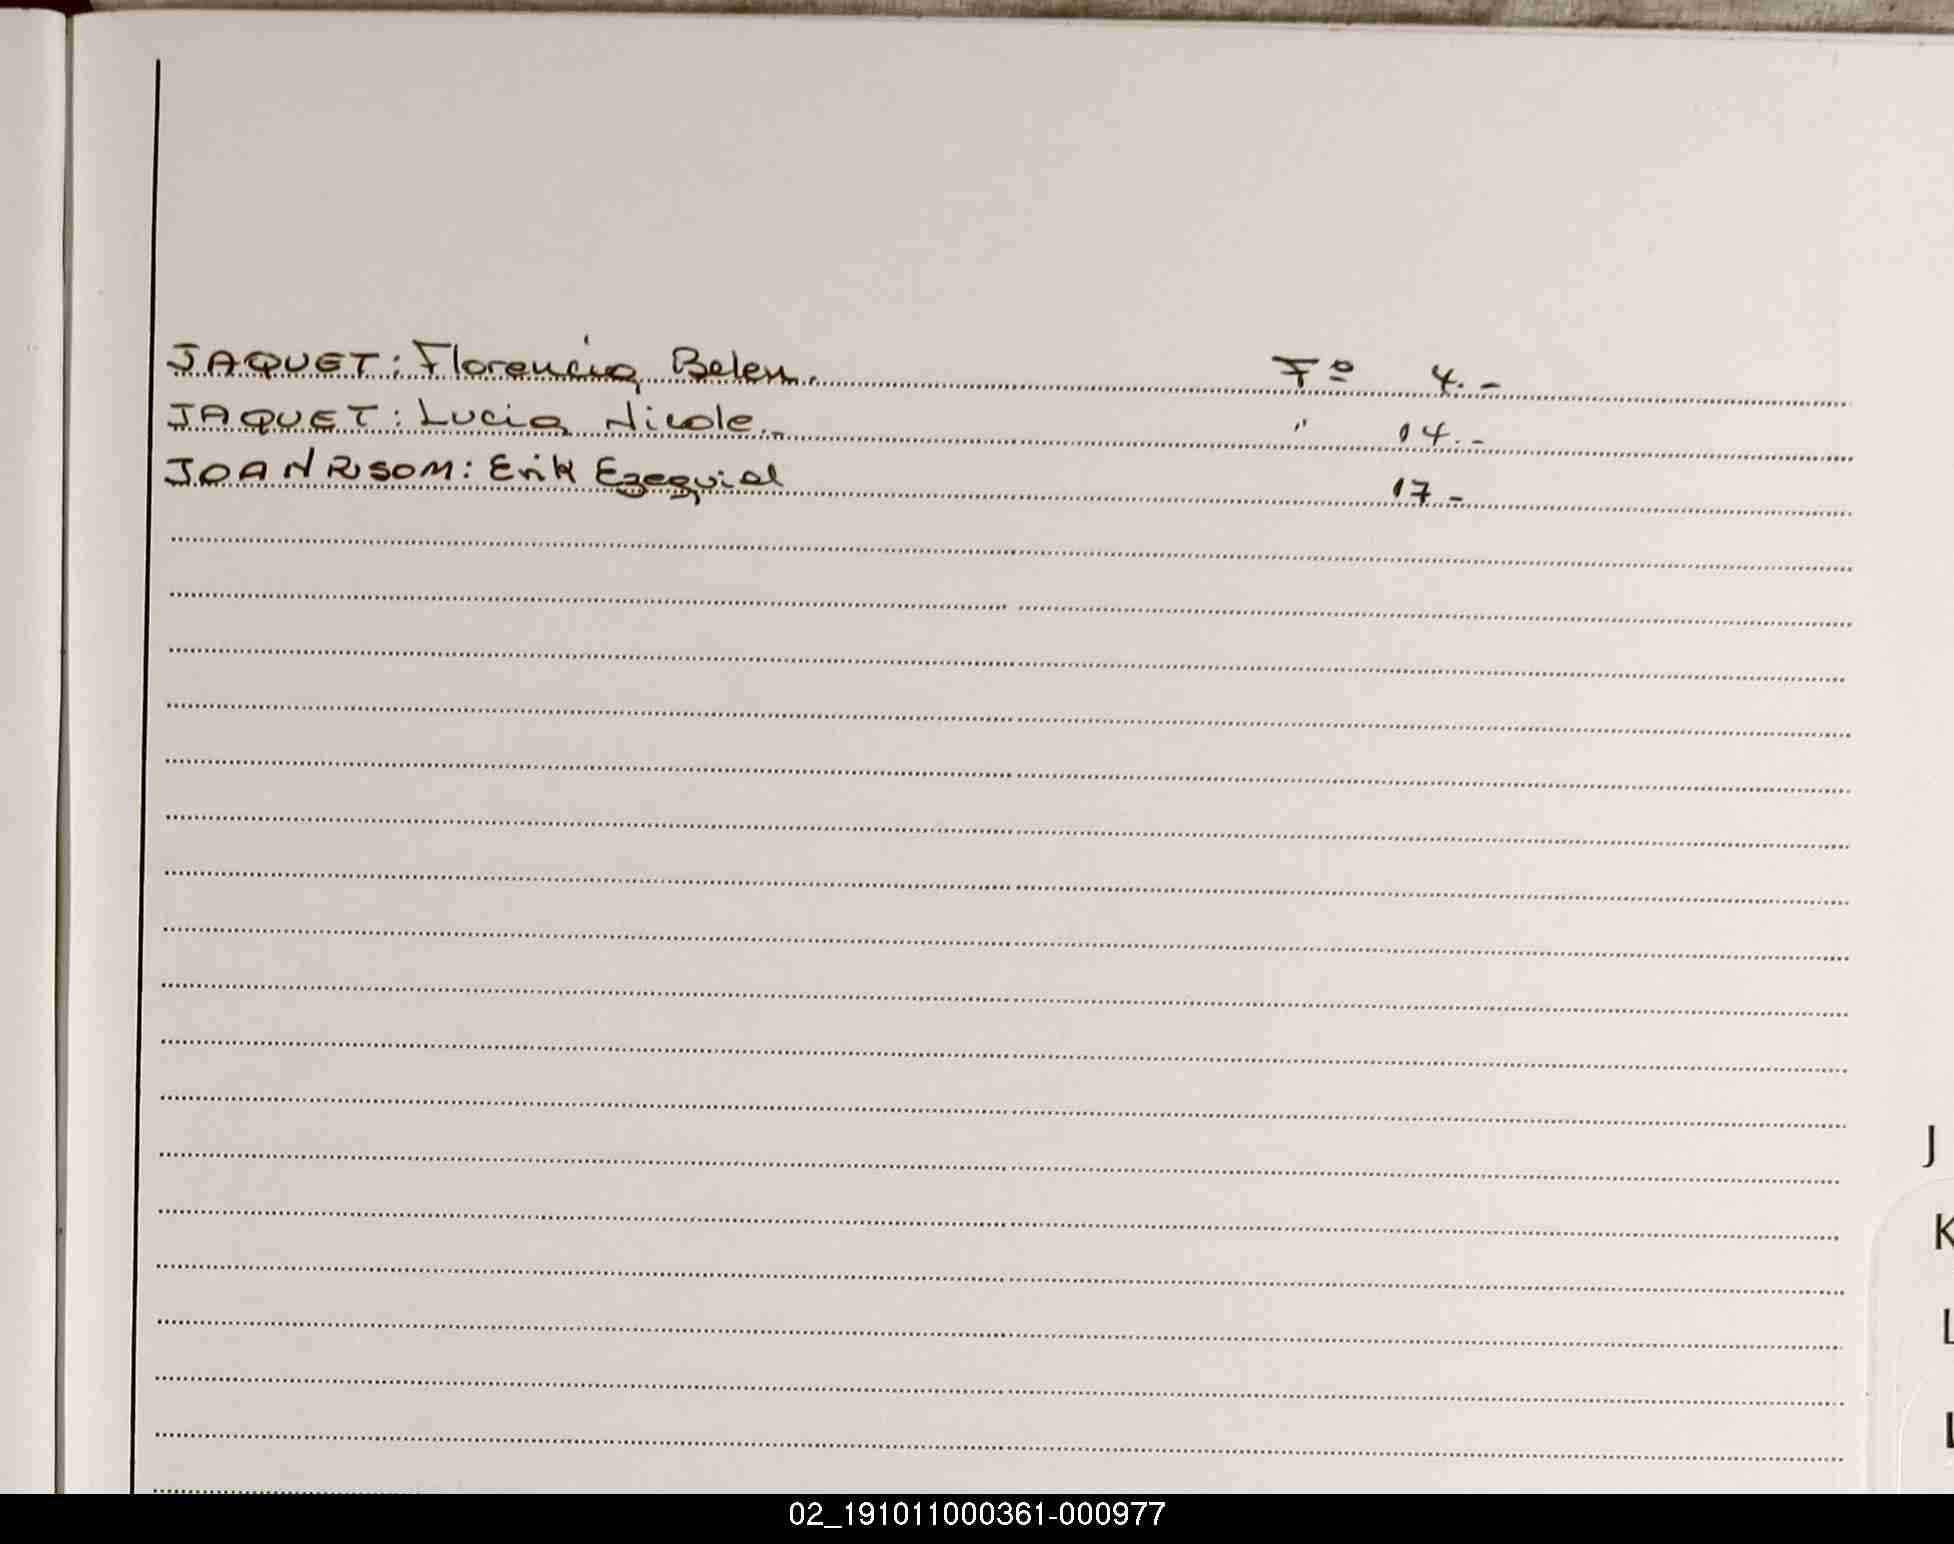 JAQUET: Florencia Belen. Fº 4.-
JAQUET: Lucia Nicole.- " 14.-
JOANRISOM: Erik Ezequiel 17-
J
K
L
L
02_191011000361-000977